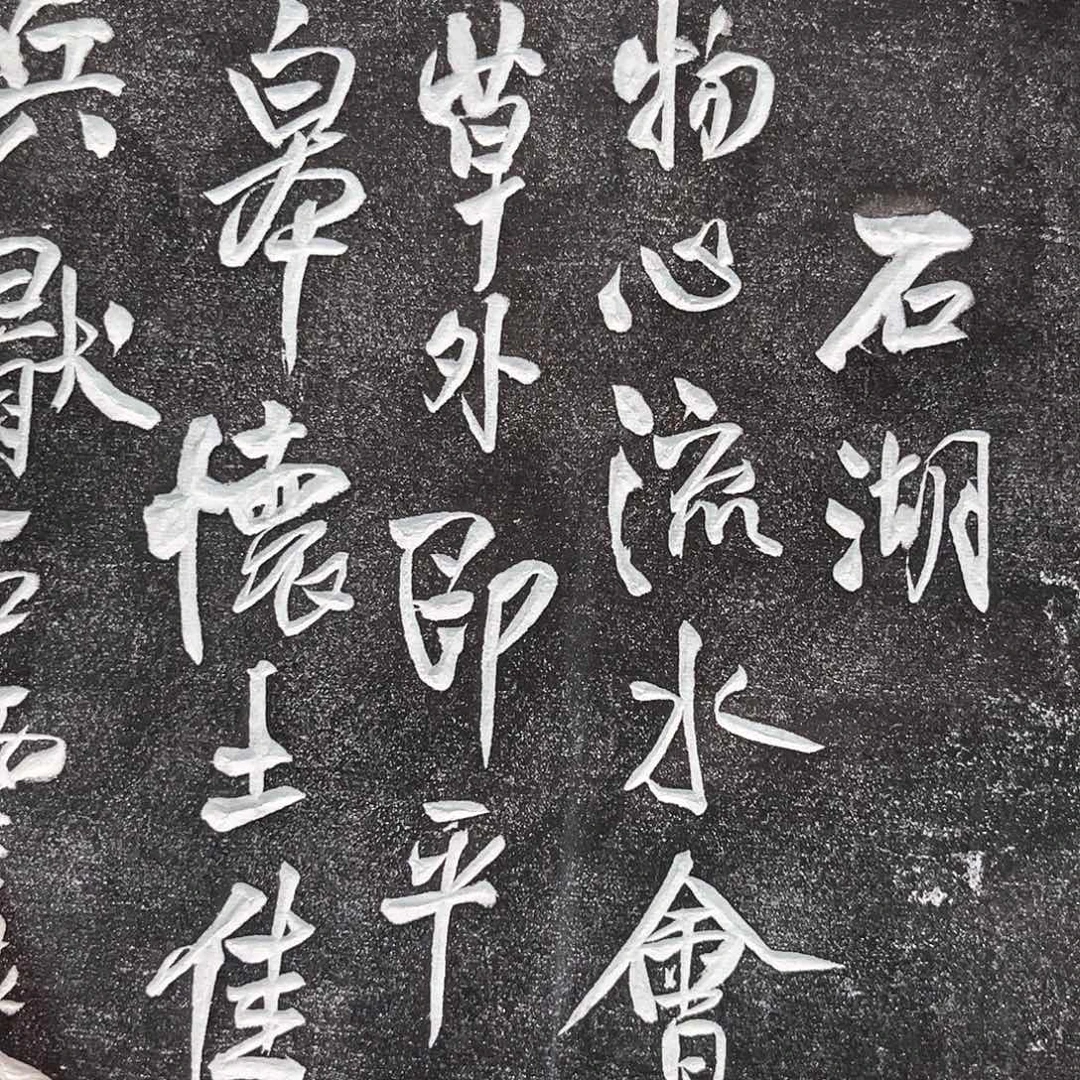 石湖
物心流水會
草外即平
皋懷土佳
兵厭